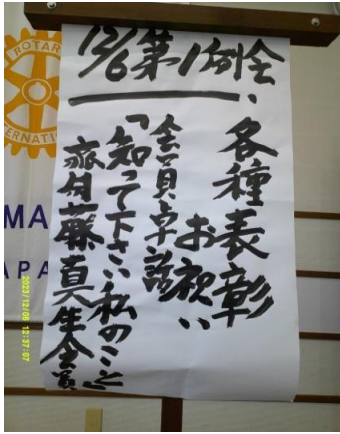 12/6 第1例会
・各種表彰
お祝い
会員卓話
「知って下さい私のこと」
齊藤真生会員
ROTAR
ERNATI
MA
APA
2023/12/06 12:37:07